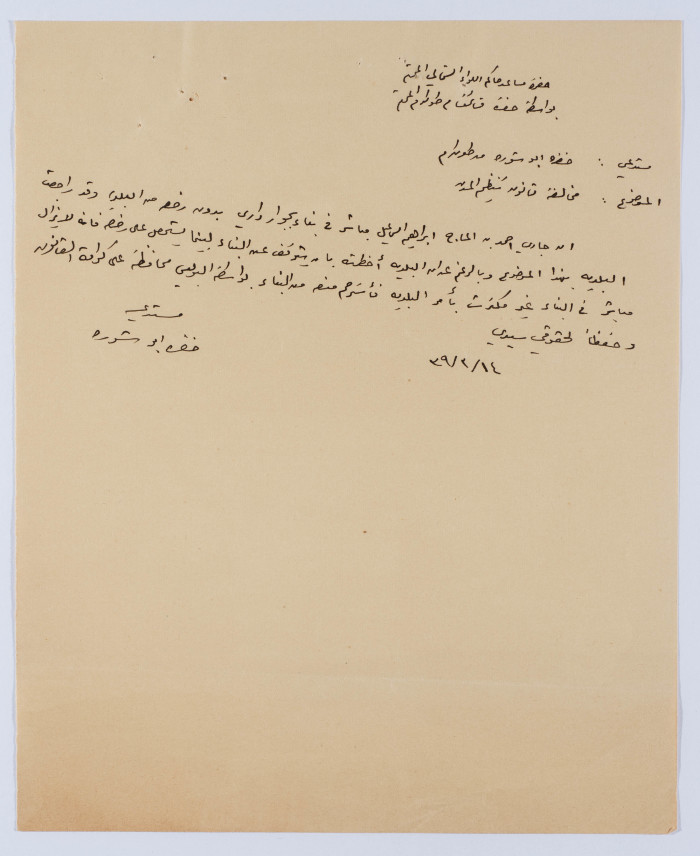 حضرة مساعد حاكم اللواء الشمالي المحترم
بواسطة حضرة قائمقام طولكرم المحترم
مستدعي : خضره ابو شوره من طولكرم
الموضوع : مخالفة قانون تنظيم المدن
ان جاري احمد بن الحاج ابراهيم اسماعيل مباشر في بناء بجوار داري بدون رخصه من البلديه وقد راجعت
البلديه بهذا الموضوع وبالرغم عن ان البلديه أخطرته بان يتوقف عن البناء لبينما يتحصل على رخصه فانه لا يزال
مباشر في البناء غير مكترث بأمر البلديه فأسترحم منعه من البناء بواسطة البوليس محافظة على كرامة القانون
وحفظاً لحقوقي سيدي
مستدعي
خضره ابو شوره
٣٩/٢/١٤